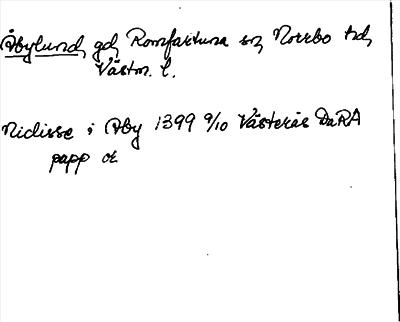 Åbylund, gd, Romfartuna sn, Norrbo hd,
Västm. l.
Niclisse i Aby 1399 9/10 Västerås DaRA
papp or